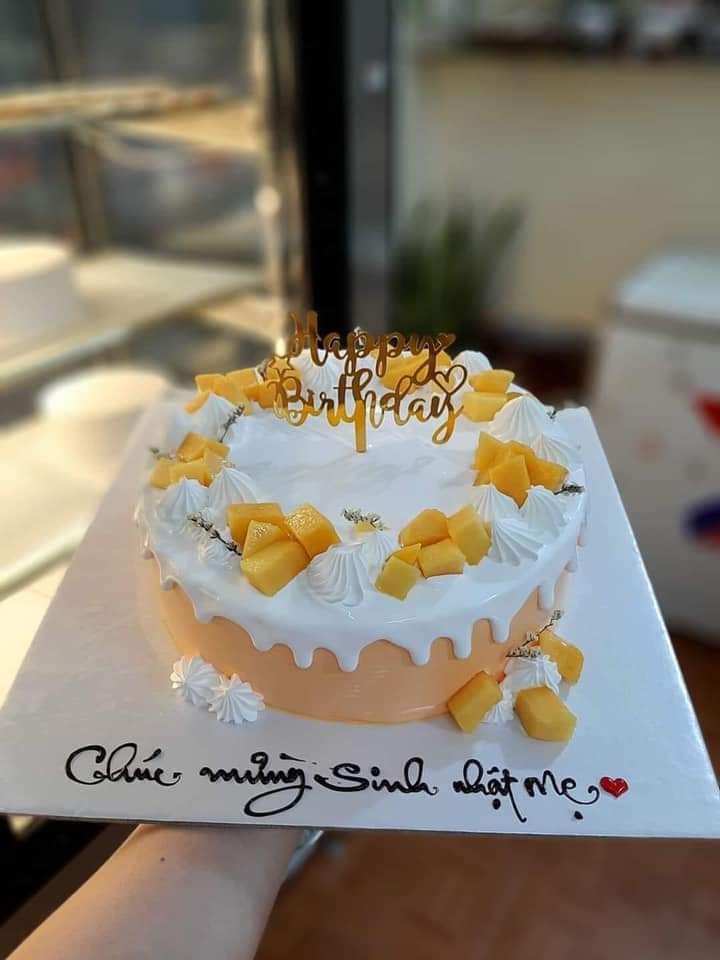 Happy
Birthday
Chúc mừng Sinh nhật Mẹ